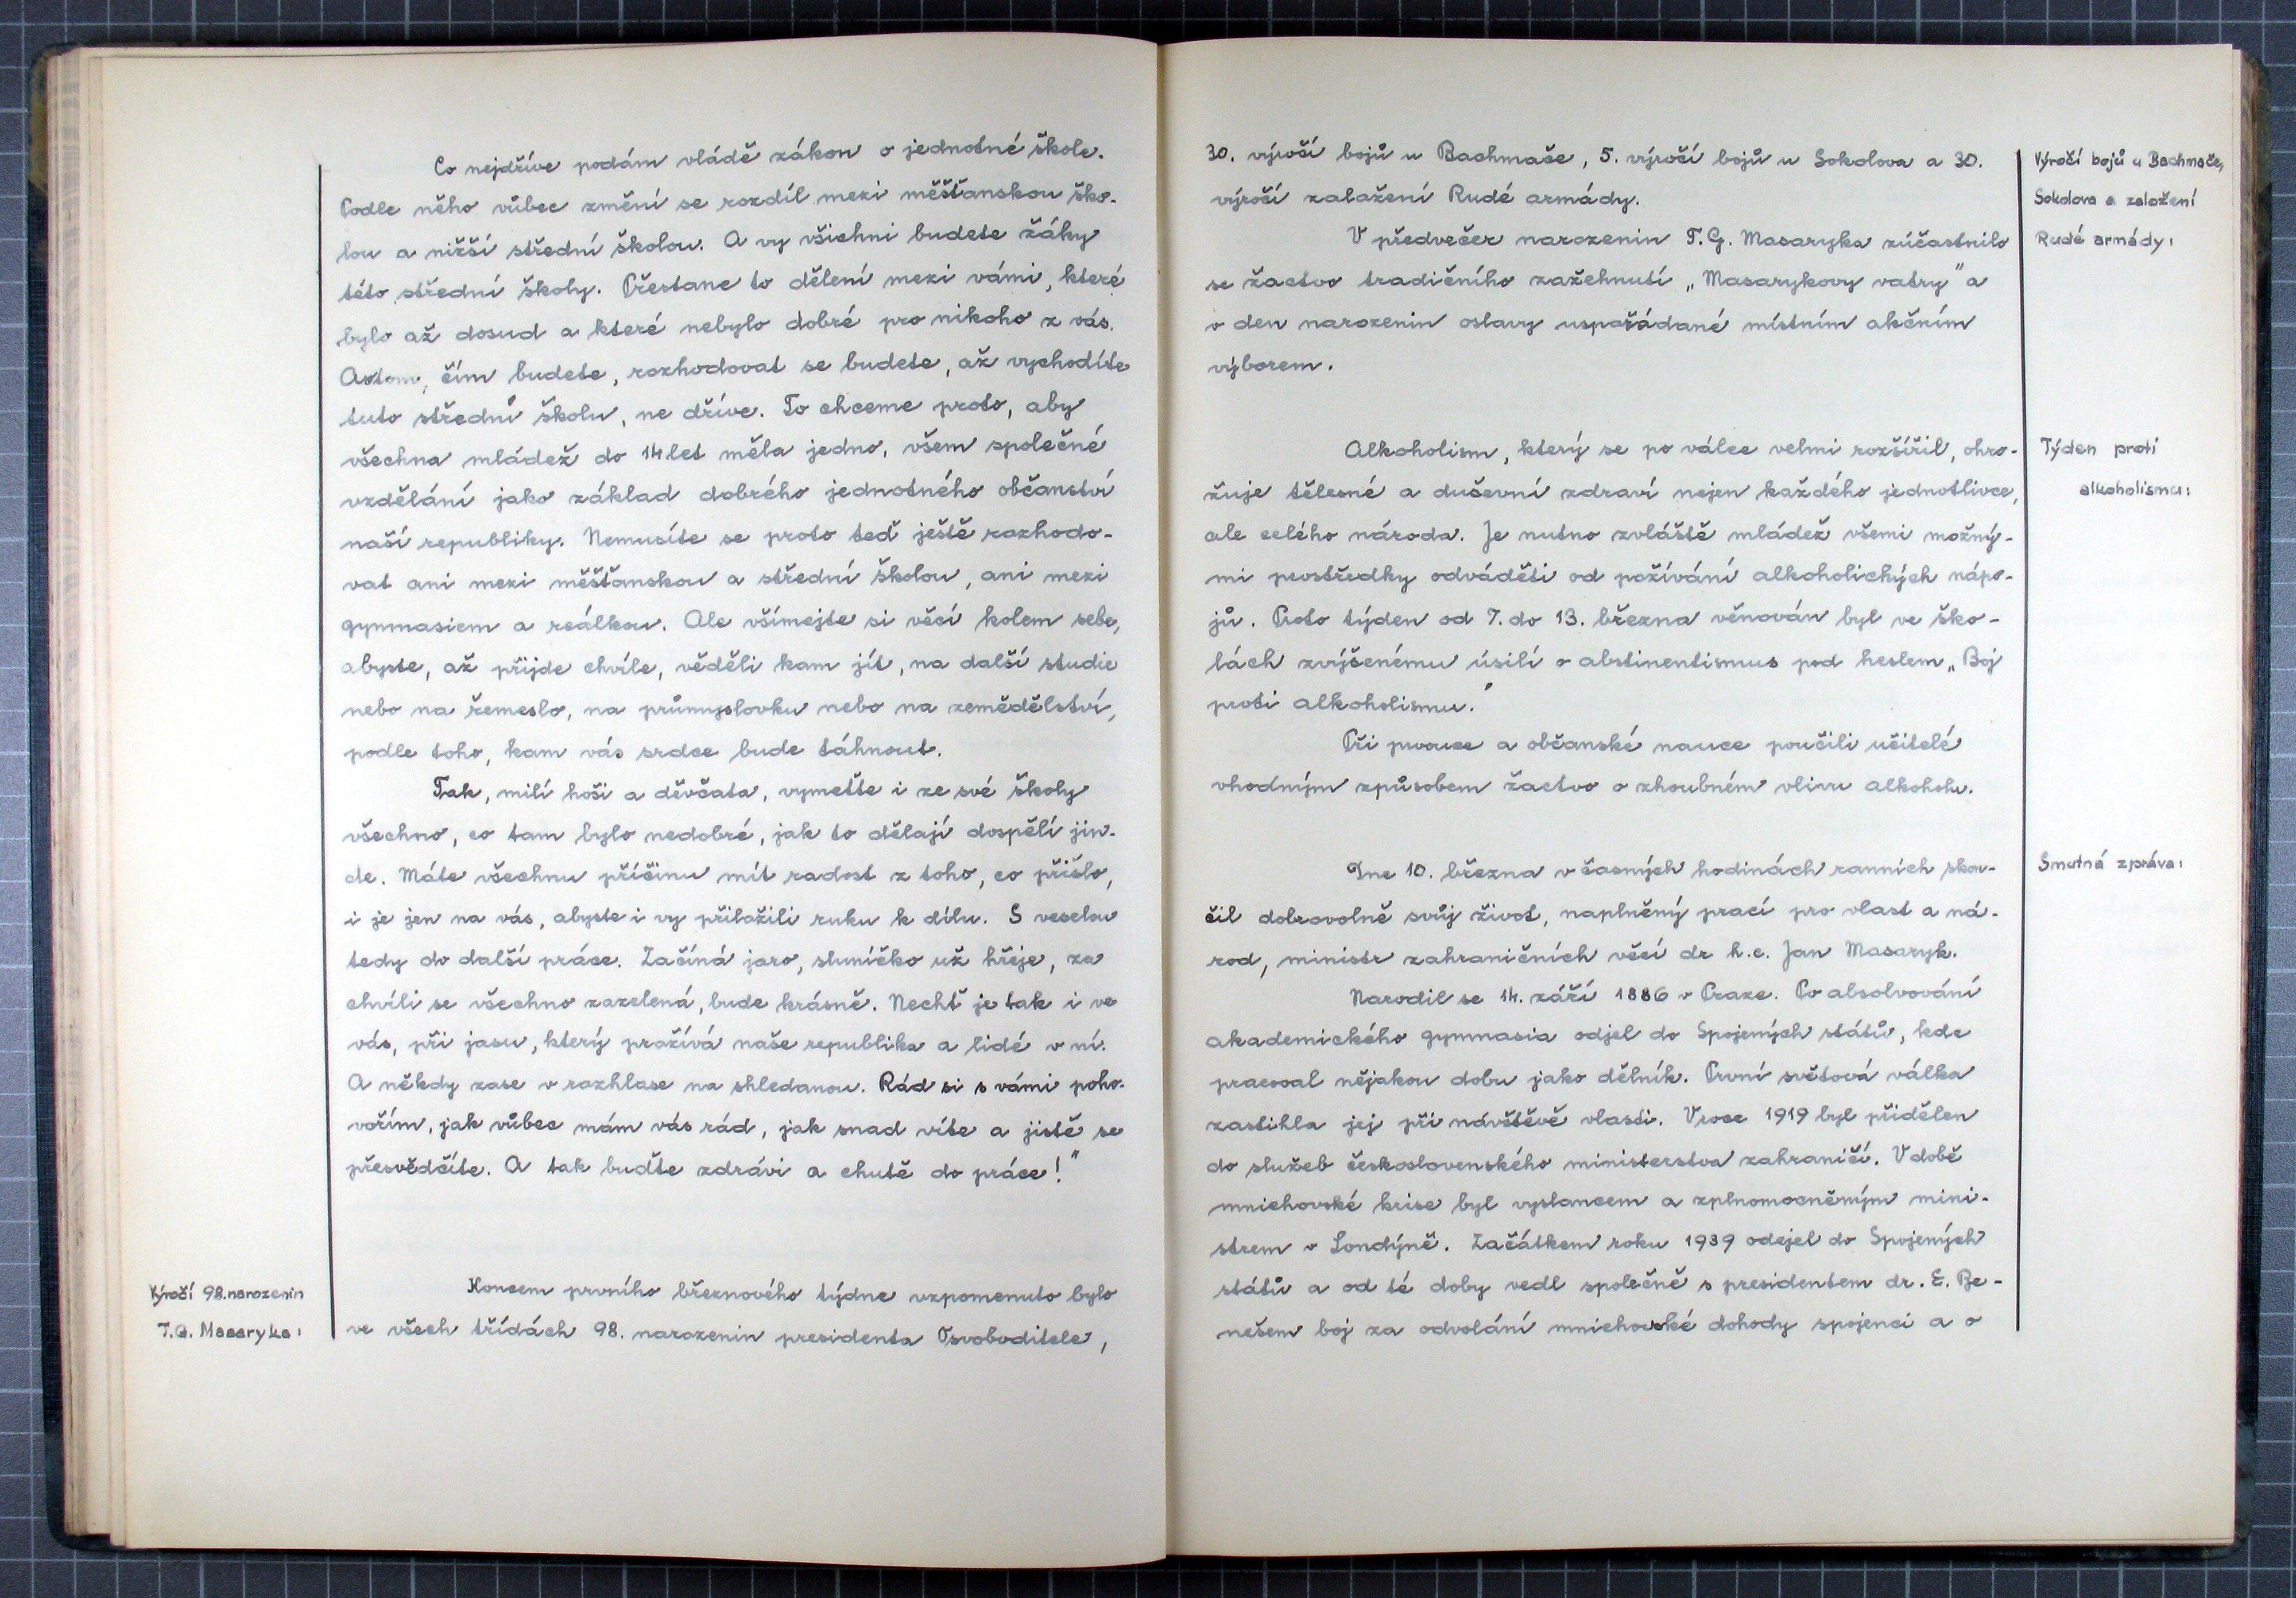 Co nejdříve podám vládě zákon o jednotné škole.
Podle něho vůbec změní se rozdíl mezi měšťanskou ško-
lou a nižší střední školou. A vy všichni budete žáky
této střední školy. Přestane to dělení mezi vámi, které
bylo až dosud a které nebylo dobré pro nikoho z vás.
A o tom, čím budete, rozhodovat se budete, až vychodíte
tuto střední školu, ne dříve. To chceme proto, aby
všechna mládež do 14 let měla jedno, všem společné
vzdělání jako základ dobrého jednotného občanství
naší republiky. Nemusíte se proto teď ještě rozhodo-
vat ani mezi měšťanskou a střední školou, ani mezi
gymnasiem a reálkou. Ale všímejte si věcí kolem sebe,
abyste, až přijde chvíle, věděli kam jít, na další studie
nebo na řemeslo, na průmyslovku nebo na zemědělství,
podle toho, kam vás srdce bude táhnout.
Tak, milí hoši a děvčata, vymeťte i ze své školy
všechno, co tam bylo nedobré, jak to dělají dospělí jin-
de. Máte všechnu příčinu mít radost z toho, co přišlo,
i je jen na vás, abyste i vy přiložili ruku k dílu. S veselou
tedy do další práce. Začíná jaro, sluníčko už hřeje, za
chvíli se všechno zazelená, bude krásně. Nechť je tak i ve
vás, při jasu, který prožívá naše republika a lidé v ní.
A někdy zase v rozhlase na shledanou. Rád si s vámi poho-
vořím, jak vůbec mám vás rád, jak snad víte a jistě se
přesvědčíte. A tak buďte zdrávi a chutě do práce!"
Výročí 98. narozenin
T.G. Masaryka:
Koncem prvního březnového týdne vzpomenuto bylo
ve všech třídách 98. narozenin presidenta Osvoboditele,
30. výročí bojů u Bachmače, 5. výročí bojů u Sokolova a 30.
výročí založení Rudé armády.
V předvečer narozenin T. G. Masaryka zúčastnilo
se žactvo tradičního zažehnutí „Masarykovy vatry" a
v den narozenin oslavy uspořádané místním akčním
výborem.
Výročí bojů u Bachmače,
Sokolova a založení
Rudé armády:
Alkoholism, který se po válce velmi rozšířil, ohro-
žuje tělesné a duševní zdraví nejen každého jednotlivce,
ale celého národa. Je nutno zvláště mládež všemi možný-
mi prostředky odváděti od požívání alkoholických nápo-
jů. Proto týden od 7. do 13. března věnován byl ve ško-
lách zvýšenému úsilí o abstinentismus pod heslem „Boj
proti alkoholismu."
Při prvouce a občanské nauce poučili učitelé
vhodným způsobem žactvo o zhoubném vlivu alkoholu.
Týden proti
alkoholismu:
Dne 10. března v časných hodinách ranních skon-
čil dobrovolně svůj život, naplněný prací pro vlast a ná-
rod, ministr zahraničních věcí dr h.c. Jan Masaryk.
Narodil se 14. září 1886 v Praze. Po absolvování
akademického gymnasia odjel do Spojených států, kde
pracoval nějakou dobu jako dělník. První světová válka
zastihla jej při návštěvě vlasti. V roce 1919 byl přidělen
do služeb československého ministerstva zahraničí. V době
mnichovské krise byl vyslancem a zplnomocněným mini-
strem v Londýně. Začátkem roku 1939 odejel do Spojených
států a od té doby vedl společně s presidentem dr. E. Be-
nešem boj za odvolání mnichovské dohody spojenci a o
Smutná zpráva: